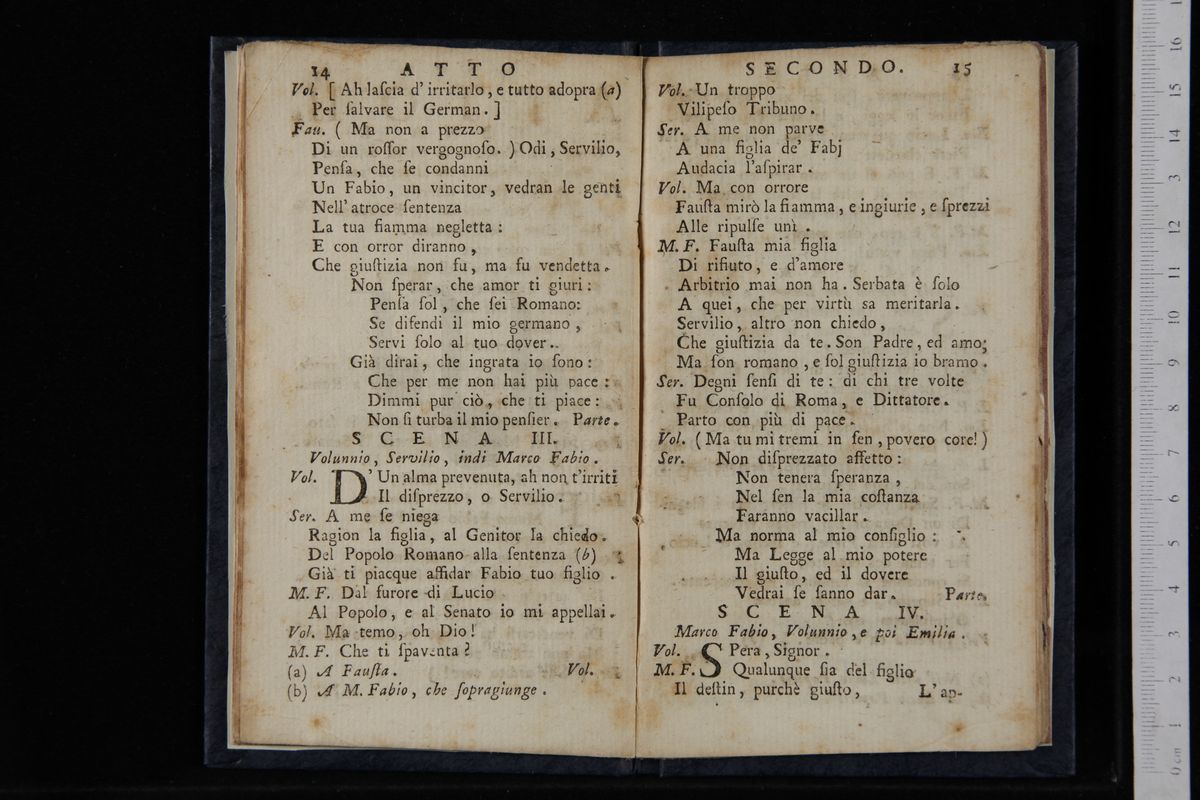 14 ATTO
Vol. [ Ah laſcia d' irritarlo, e tutto adopra (a)
Per ſalvare il German. ]
Fau. ( Ma non a prezzo
Di un roſſor vergognoſo. ) Odi, Servilio,
Penſa, che ſe condanni
Un Fabio, un vincitor, vedran le genti
Nell' atroce ſentenza
La tua fiamma negletta :
E con orror diranno,
Che giuſtizia non fu, ma fu vendetta.
Non ſperar, che amor ti giuri :
Penſa ſol, che ſei Romano:
Se difendi il mio germano,
Servi ſolo al tuo dover..
Già dirai, che ingrata io ſono :
Che per me non hai più pace :
Dimmi pur ciò, che ti piace :
Non ſi turba il mio penſier. Parte.
SCENA III.
Volunnio, Servilio, indi Marco Fabio.
Vol. D' Un alma prevenuta, ah non t'irriti
Il diſprezzo, o Servilio.
Ser. A me ſe niega
Ragion la figlia, al Genitor la chiedo.
Del Popolo Romano alla ſentenza (b)
Già ti piacque affidar Fabio tuo figlio.
M. F. Dal furore di Lucio
Al Popolo, e al Senato io mi appellai.
Vol. Ma temo, oh Dio!
M. F. Che ti ſpaventa ?
(a) A Fauſta. Vol.
(b) A M. Fabio, che ſopragiunge.
SECONDO. 15
Vol. Un troppo
Vilipeſo Tribuno.
Ser. A me non parve
A una figlia de' Fabj
Audacia l'aſpirar.
Vol. Ma con orrore
Fauſta mirò la fiamma, e ingiurie, e ſprezzi
Alle ripulſe unì.
M. F. Fauſta mia figlia
Di rifiuto, e d'amore
Arbitrio mai non ha. Serbata è ſolo
A quei, che per virtù sa meritarla.
Servilio, altro non chiedo,
Che giuſtizia da te. Son Padre, ed amo;
Ma ſon romano, e ſol giuſtizia io bramo.
Ser. Degni ſenſi di te : di chi tre volte
Fu Conſolo di Roma, e Dittatore.
Parto con più di pace.
Vol. ( Ma tu mi tremi in ſen, povero core! )
Ser. Non diſprezzato affetto :
Non tenera ſperanza,
Nel ſen la mia coſtanza
Faranno vacillar.
Ma norma al mio conſiglio :
Ma Legge al mio potere
Il giuſto, ed il dovere
Vedrai ſe ſanno dar. Parte.
SCENA IV.
Marco Fabio, Volunnio, e poi Emilia.
Vol. SPera, Signor.
M. F. Qualunque ſia del figlio
Il deſtin, purchè giuſto, L'ap-
0 cm 1 2 3 4 5 6 7 8 9 10 11 12 13 14 15 16